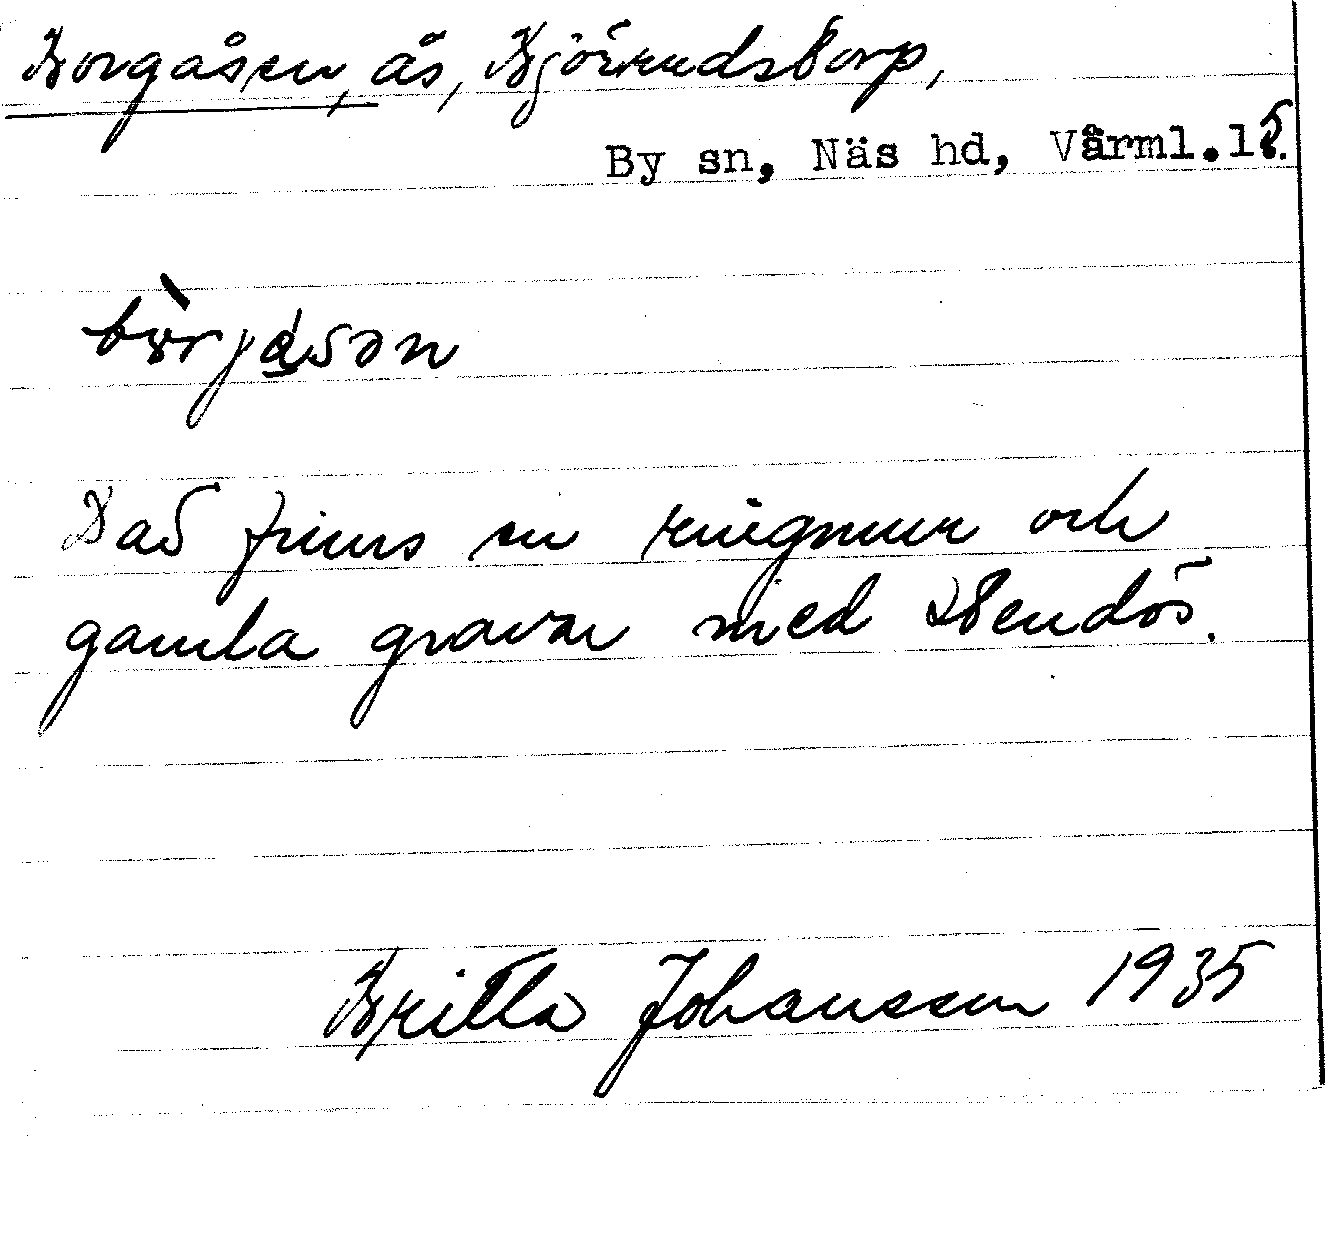 Borgåsen, ås, Björnudstorp,
By sn, Näs hd, Värml.l.
bòrjåsən
Där finns en ringmur och
gamla gravar med stendös.
Britta Johansson 1935